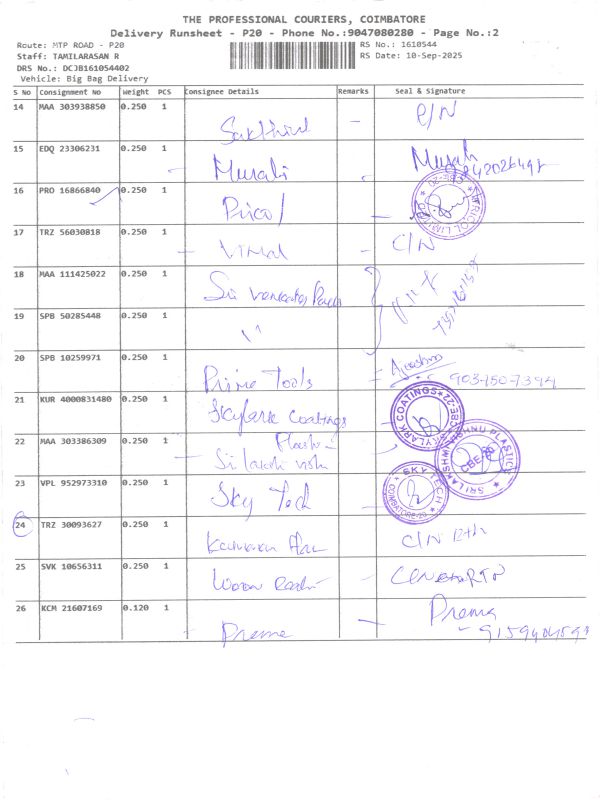 THE PROFESSIONAL COURIERS, COIMBATORE
Delivery Runsheet - P20 - Phone No.:9047080280 - Page No.:2
Route: MTP ROAD - P20 RS No.: 1610544
Staff: TAMILARASAN R RS Date: 10-Sep-2025
DRS No.: DCJB161054402
Vehicle: Big Bag Delivery
S No Consignment No Weight PCS Consignee Details Remarks Seal & Signature
14 MAA 303938850 0.250 1 Sakthivel
15 EDQ 23306231 0.250 1 Murali Murali
16 PRO 16866840 0.250 1 Pricol
17 TRZ 56030818 0.250 1 Vimal C/N
18 MAA 111425022 0.250 1 Sri
19 SPB 50285448 0.250 1 "
20 SPB 10259971 0.250 1 Prime Tools 903-150-7394
21 KUR 4000831480 0.250 1 Skylark Coatings SKYLARK COATINGS
22 MAA 303386309 0.250 1 Sri Lakshmi SRI LAKSHMI VISHNU PLASTICS CBE-20
23 VPL 952973310 0.250 1 Sky Tech SKY TECH COIMBATORE-20
24 TRZ 30093627 0.250 1 C/N
25 SVK 10656311 0.250 1
26 KCM 21607169 0.120 1 Preme Prema